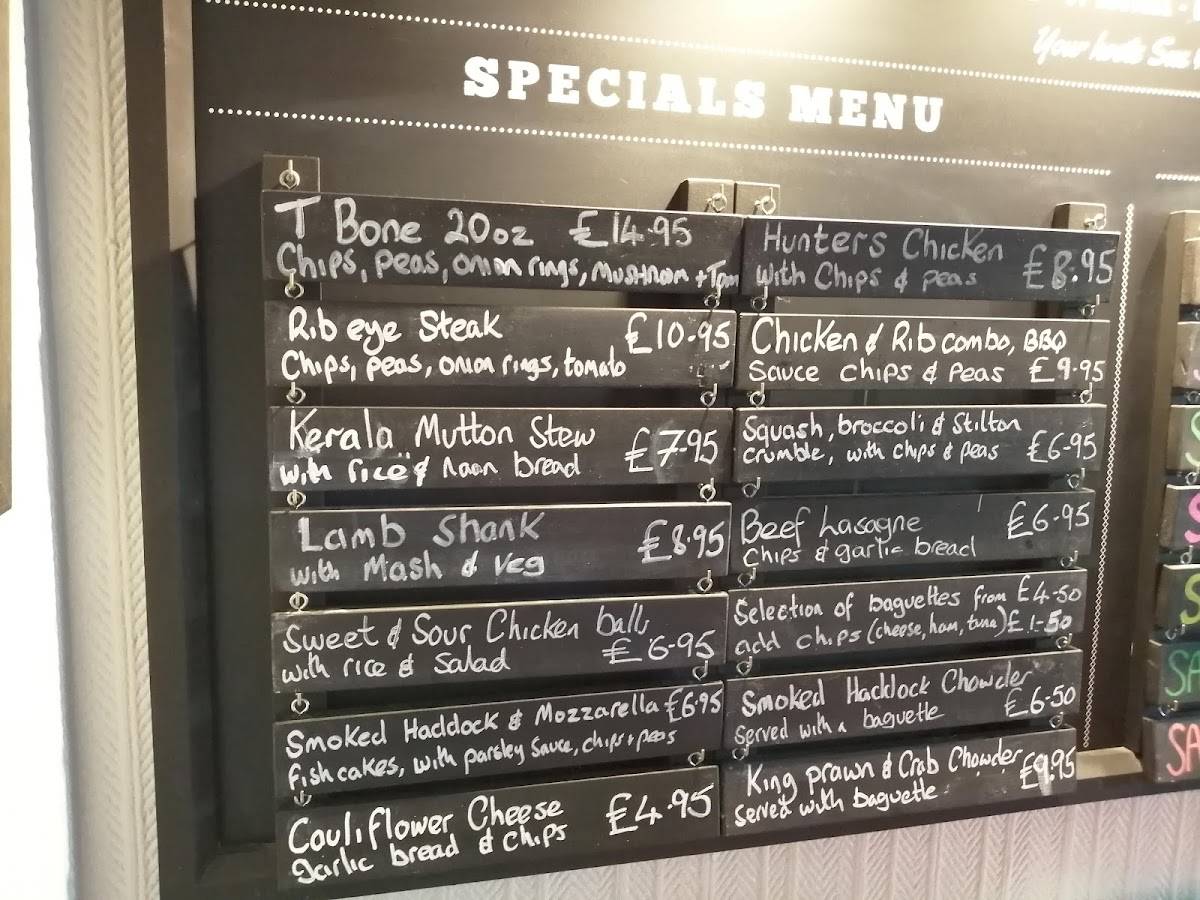 Your hosts
SPECIALS MENU
T Bone 20oz £14.95
Chips, peas, onion rings, Mushroom + Tom
Rib eye Steak £10.95
Chips, peas, onion rings, tomato
Kerala Mutton Stew £7.95
with rice & Naan bread
Lamb Shank £8.95
with Mash & Veg
Sweet & Sour Chicken balls
with rice & Salad £6.95
Smoked Haddock & Mozzarella £6.95
fishcakes, with parsley sauce, chips + peas
Cauliflower Cheese £4.95
garlic bread & chips
Hunters Chicken £8.95
with Chips & peas
Chicken & Rib combo, BBQ
Sauce chips & Peas £9.95
Squash, broccoli & Stilton
crumble, with chips & peas £6.95
Beef Lasagne £6.95
chips & garlic bread
Selection of baguettes from £4-50
add chips (cheese, ham, tuna) £1-50
Smoked Haddock Chowder
Served with a baguette £6-50
King prawn & Crab Chowder £9.95
served with baguette
SA
SA